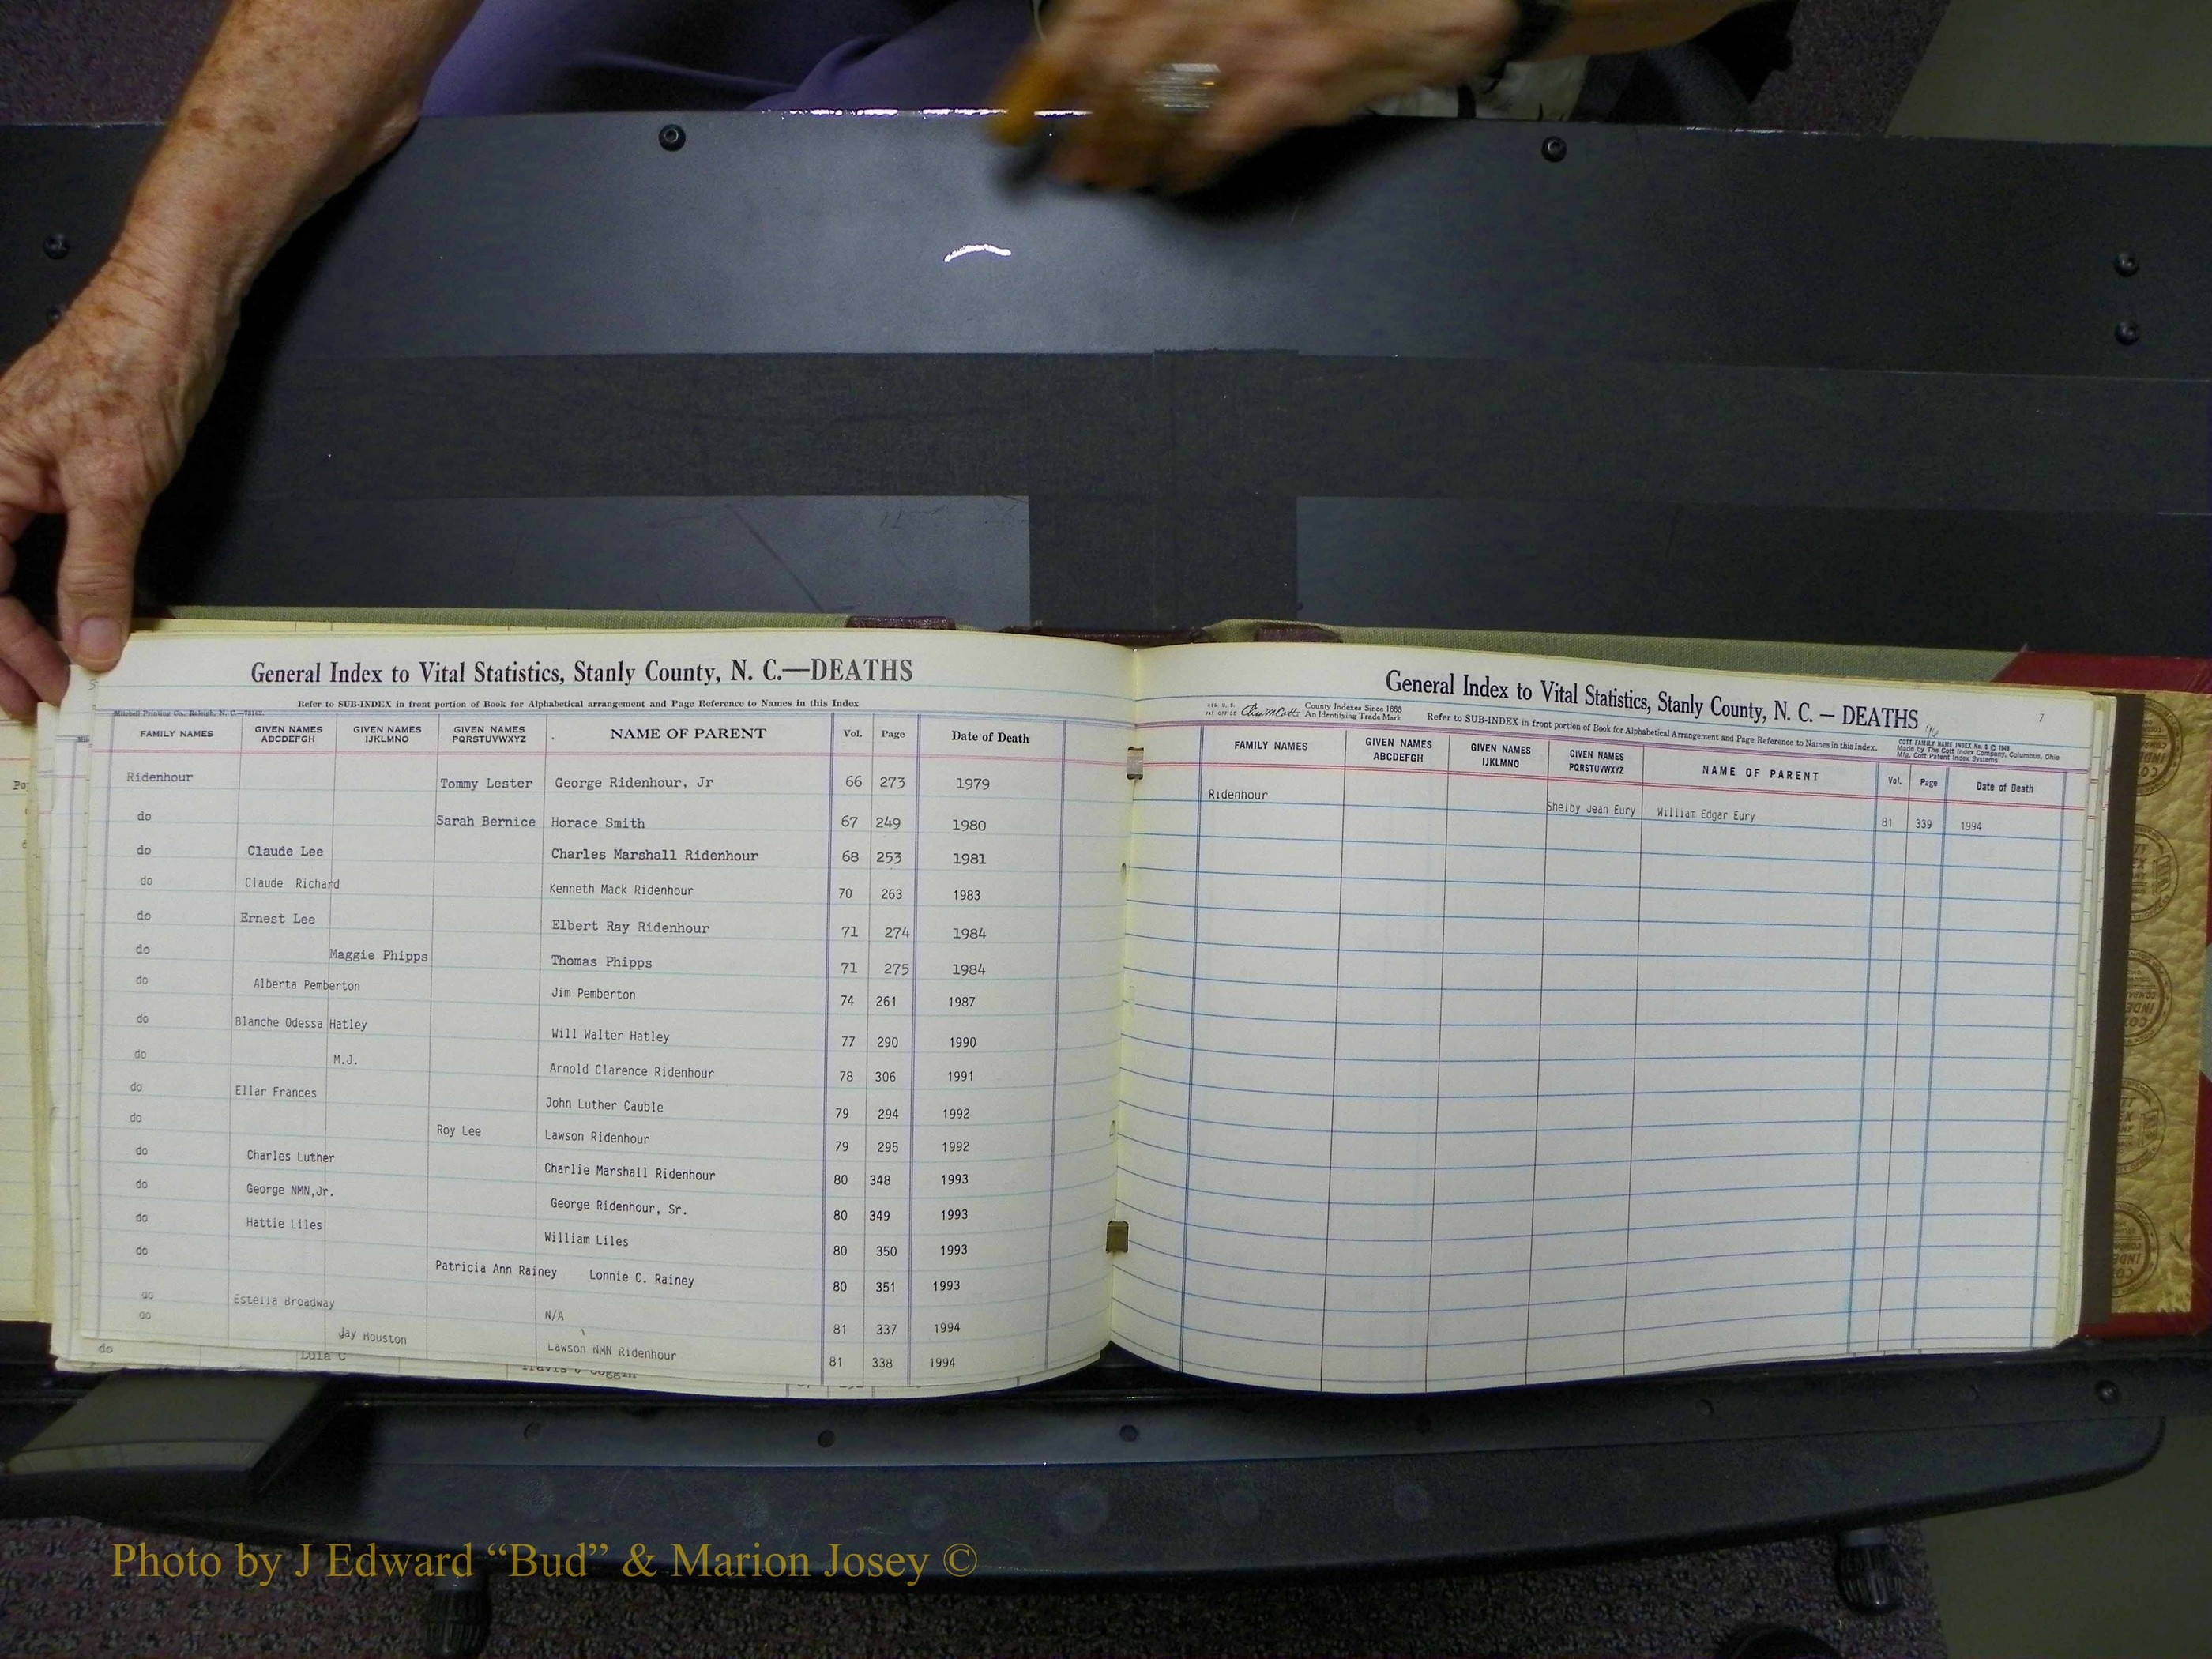 General Index to Vital Statistics, Stanly County, N. C.—DEATHS
Refer to SUB-INDEX in front portion of Book for Alphabetical arrangement and Page Reference to Names in this Index
Mitchell Printing Co., Raleigh, N. C.
FAMILY NAMES GIVEN NAMES ABCDEFGH GIVEN NAMES IJKLMNO GIVEN NAMES PQRSTUVWXYZ NAME OF PARENT Vol. Page Date of Death
Ridenhour Tommy Lester George Ridenhour, Jr 66 273 1979
do Sarah Bernice Horace Smith 67 249 1980
do Claude Lee Charles Marshall Ridenhour 68 253 1981
do Claude Richard Kenneth Mack Ridenhour 70 263 1983
do Ernest Lee Elbert Ray Ridenhour 71 274 1984
do Maggie Phipps Thomas Phipps 71 275 1984
do Alberta Pemberton Jim Pemberton 74 261 1987
do Blanche Odessa Hatley Will Walter Hatley 77 290 1990
do M.J. Arnold Clarence Ridenhour 78 306 1991
do Ellar Frances John Luther Cauble 79 294 1992
do Roy Lee Lawson Ridenhour 79 295 1992
do Charles Luther Charlie Marshall Ridenhour 80 348 1993
do George NMN,Jr. George Ridenhour, Sr. 80 349 1993
do Hattie Liles William Liles 80 350 1993
do Patricia Ann Rainey Lonnie C. Rainey 80 351 1993
do Estella Broadway N/A 81 337 1994
do Jay Houston Lawson NMN Ridenhour 81 338 1994
do Lula C
General Index to Vital Statistics, Stanly County, N. C. — DEATHS
County Indexes Since 1888
An Identifying Trade Mark
Refer to SUB-INDEX in front portion of Book for Alphabetical Arrangement and Page Reference to Names in this Index.
COTT FAMILY NAME INDEX No. 8 © 1949
Made by The Cott Index Company, Columbus, Ohio
Mfg. Cott Patent Index Systems
7
FAMILY NAMES GIVEN NAMES ABCDEFGH GIVEN NAMES IJKLMNO GIVEN NAMES PQRSTUVWXYZ NAME OF PARENT Vol. Page Date of Death
Ridenhour Shelby Jean Eury William Edgar Eury 81 339 1994
Photo by J Edward “Bud” & Marion Josey ©